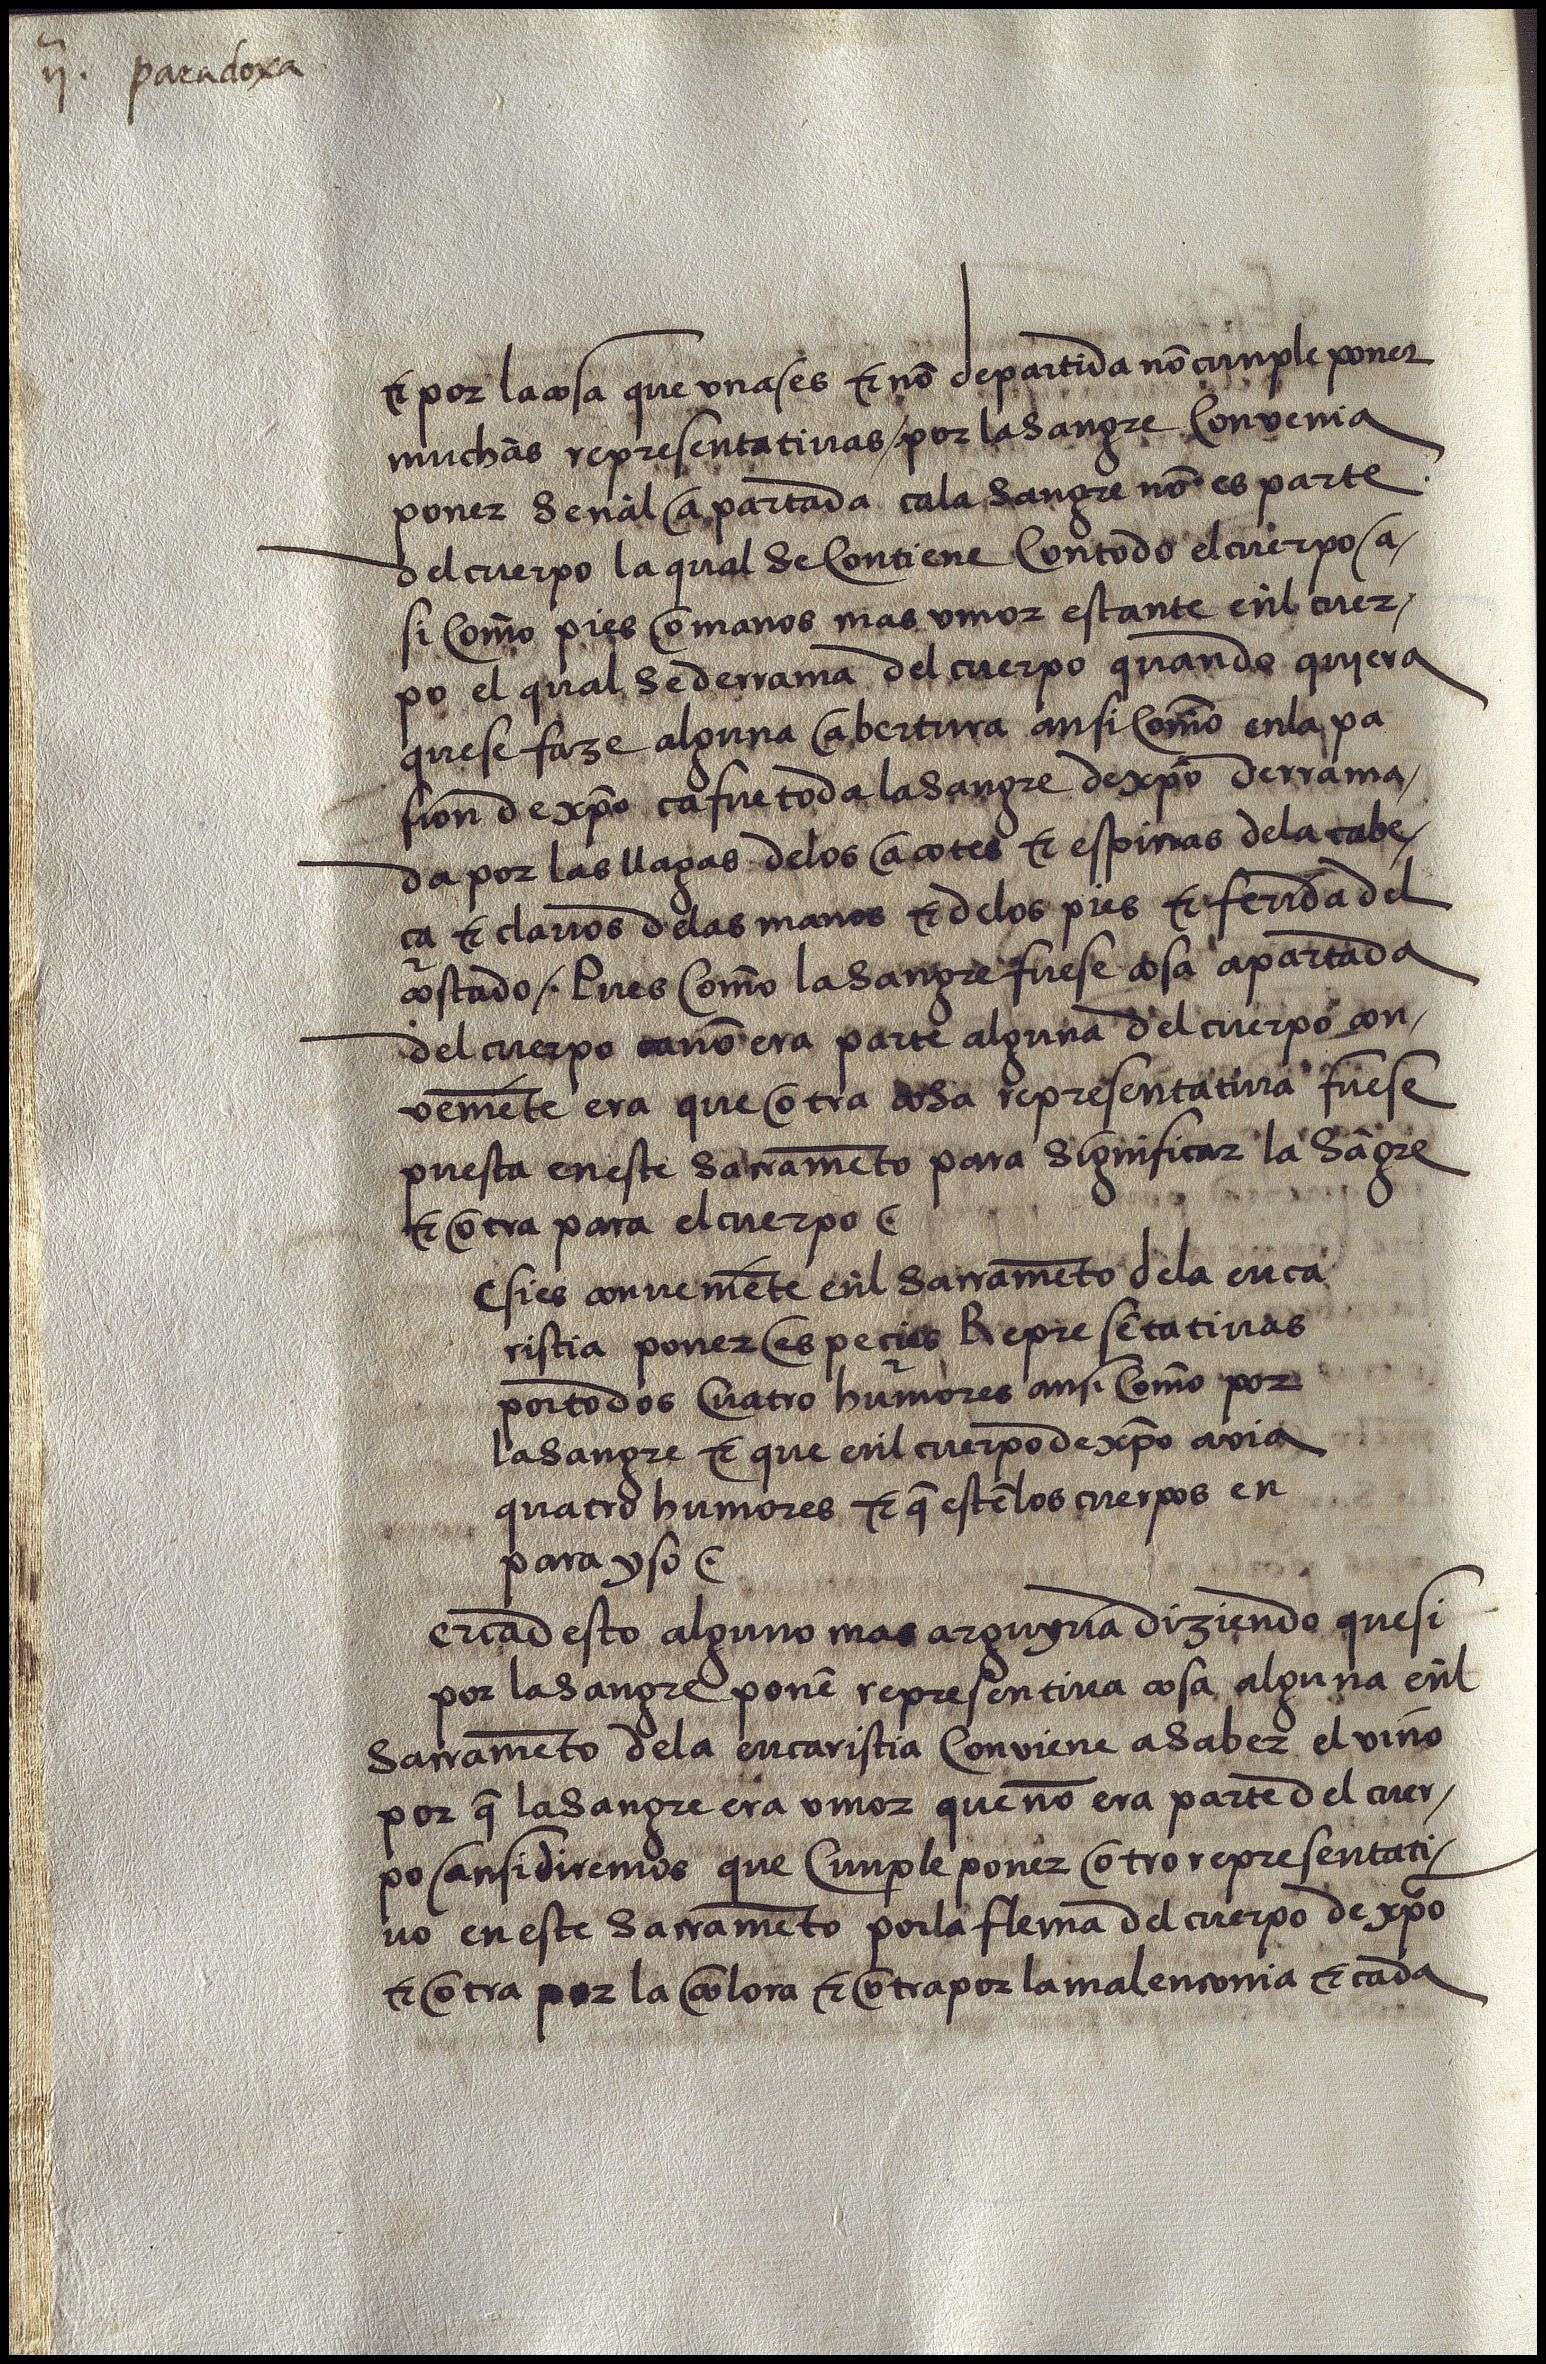 ij. paradoxa
τ por la cosa que vna ses τ nõ departida nõ cunple poner
muchas representatiuas / por la sangre convenia
poner señal apartada ca la sangre nõ es parte
del cuerpo la qual se contiene con todo el cuerpo a/
si com̃o pies o manos mas vmor estante en̉l cuer/
po el qual se derrama del cuerpo quando quiera
que se faze alguna abertura ansi com̃o en la pa
sion de xp̃o ca fue toda la sangre de xp̃o derrama/
da por las llagas delos açotes τ espinas dela cabe/
ça τ clauos delas manos τ delos pies τ ferida del
costado /. Pues com̃o la sangre fuese cosa apartada
del cuerpo ca nõ era parte alguna del cuerpo con/
veniẽte era que otra cosa representatiua fuese
puesta en este sacramẽto para significar la sãgre
τ otra para el cuerpo
Si es conueniẽte en̉l sacramẽto dela euca
ristia poner especies Represẽtatiuas
por todos cuatro humores ansi com̃o por
la sangre τ que en̉l cuerpo de xp̃o avia
quatro humores τ q̃ estẽ los cuerpos en
parayso
cerca desto alguno mas arguyria diziendo que si
por la sangre ponẽ representiua cosa alguna en̉l
sacramẽto dela eucaristia conviene a saber el vino
por q̃ la sangre era vmor que nõ era parte del cuer/
po ansi diremos que cunple poner otro representati/
uo en este sacramẽto por la flema del cuerpo de xp̃o
τ otra por la colora τ otra por la malenconia τ cada